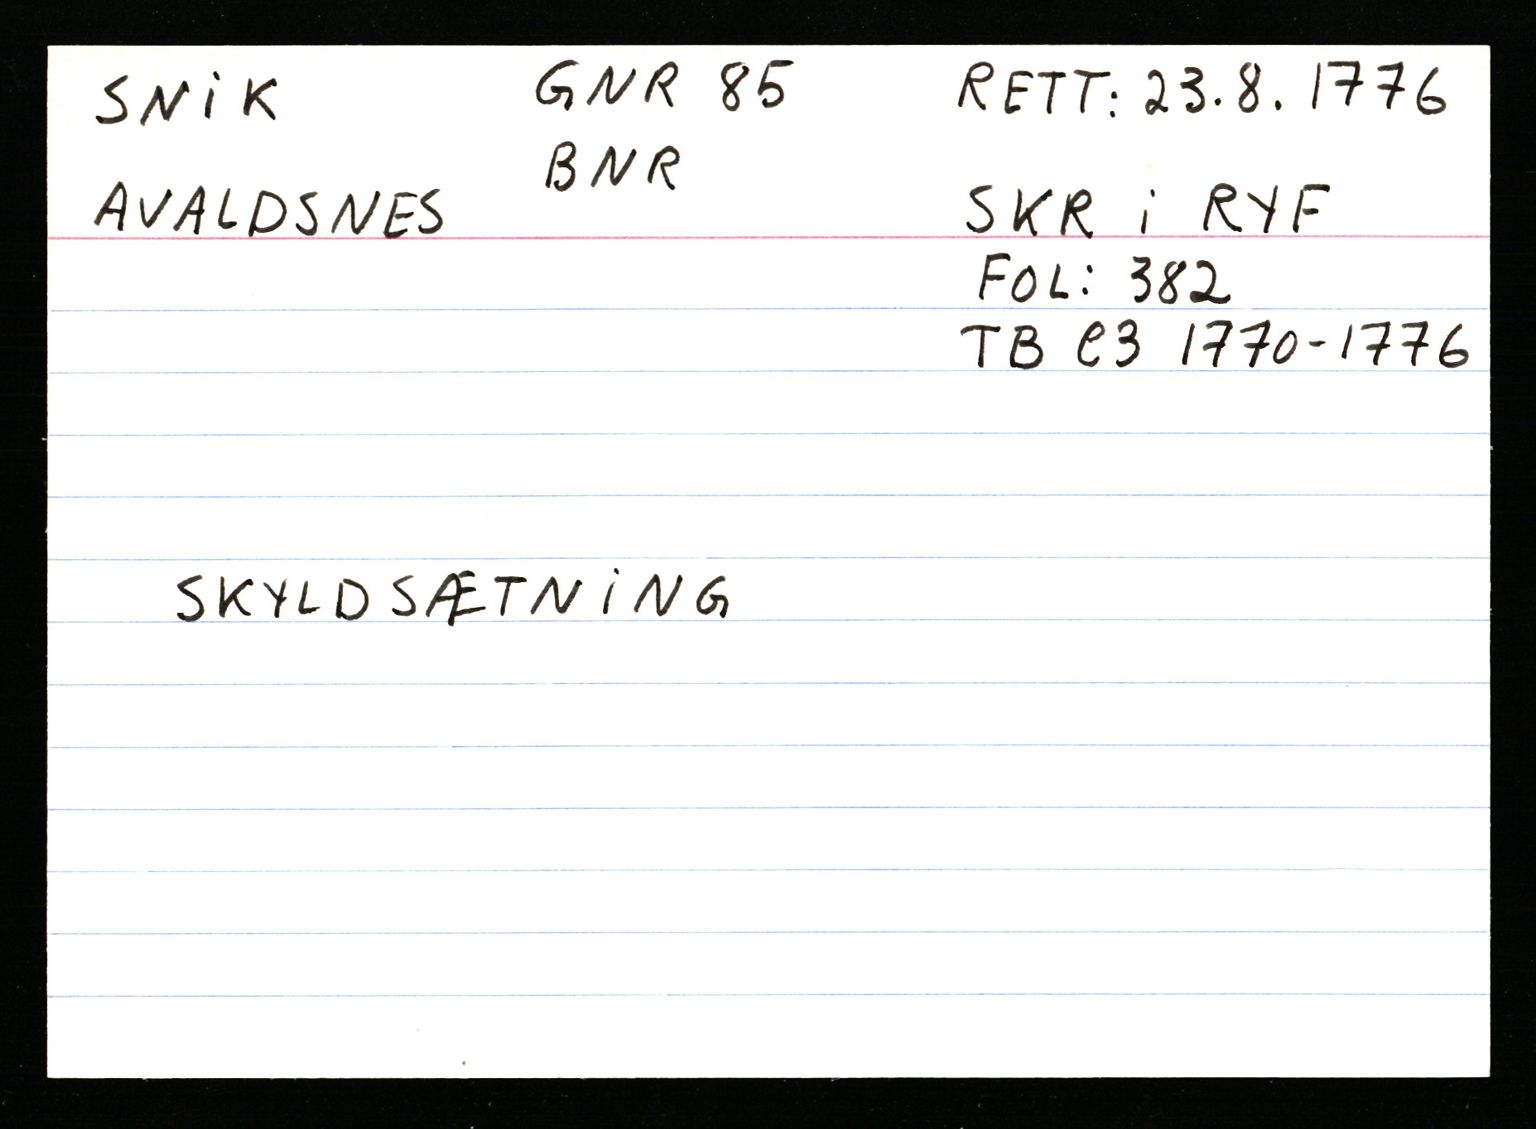 SNiK
GNR 85
RETT: 23.8.1776
BNR
AVALDSNES
SKR i RYF
FOL: 382
TB C3 1770-1776
SKYLDSÆTNiNG